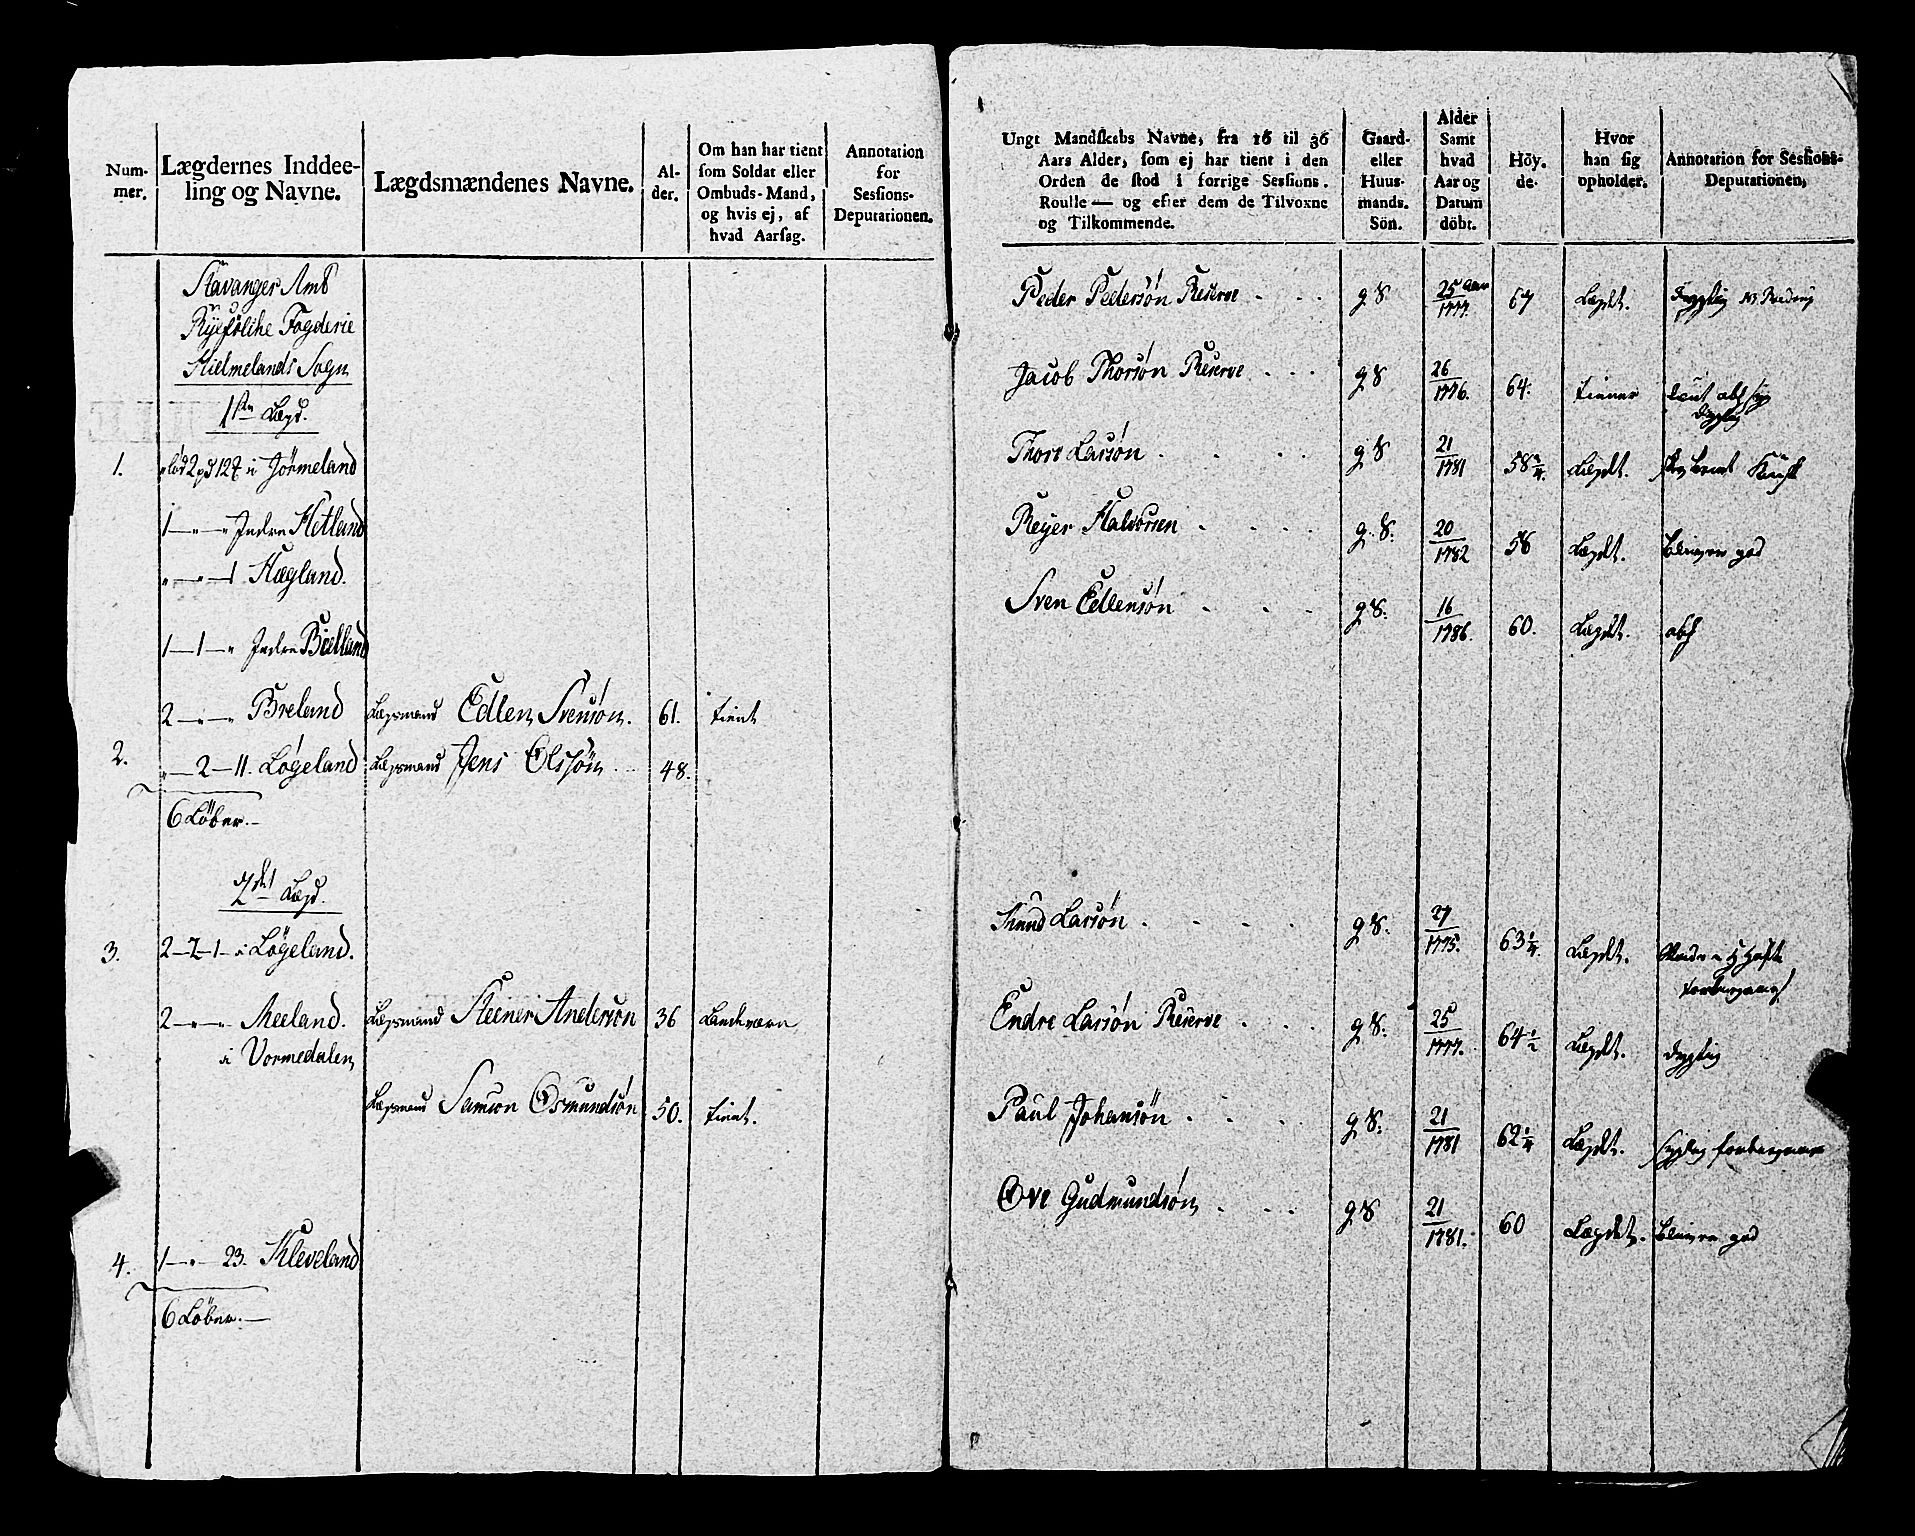 Num-
mer.
Lægdernes Inddee-
ling og Navne.
Lægdsmændenes Navne.
Al-
der.
Om han har tient
som Soldat eller
Ombuds-Mand,
og hvis ej, af
hvad Aarsag.
Annotation
for
Sessions-
Deputationen.
Stavanger Amt
Ryefølche Fogderie
Hielmelands Sogn
1ste Lægd.
1. Jørmeland
1 Indre Hetland
1 Hægland.
1 1 Indre Bielland
2 Breland Lægsmand Edlen Svensøn. 61. tient
2. 2 11. Løgeland Lægsmand Jens Olssøn 48.
6 Løber.
2det Lægd.
3. 2 2 1 i Løgeland.
2 Meeland. Lægsmand Steener Anderson 36 Landeværn
i Vormedalen
Lægsmand Samson Osmundsøn 50. tient.
4. 1 23. Kleveland
6 Løber.
Ungt Mandskabs Navne, fra 16 til 36
Aars Alder, som ej har tient i den
Orden de stod i forrige Sessions-
Roulle — og efter dem de Tilvoxne
og Tilkommende.
Gaard-
eller
Huus-
mands-
Sön.
Alder
Samt
hvad
Aar og
Datum
döbt.
Höy-
de.
Hvor
han sig
opholder.
Annotation for Sessions-
Deputationen,
Peder Pedersøn Reserve g S 25 Aar 1777. 67 Lægdt. Dygtig
Jacob Thorsøn Reserve g S 26 1776. 64. tiener
dygtig
Thore Larsøn g S 21 1781 58 3/4. Lægdt.
Reyer Halvorsen g. S. 20 1782 58 Lægdt. god
Sven Edlensøn g S. 16 1786. 60. Lægdt.
Knud Larsøn g S. 27 1775. 63 1/4 Lægdt.
Endre Larsøn Reserve g S. 25 1777. 64 1/2 Lægdt. dygtig
Paul Johansøn g S. 21 1781 62 1/4 Lægdt.
Ove Gudmundsøn g S 21 1781. 60 Lægdet. god